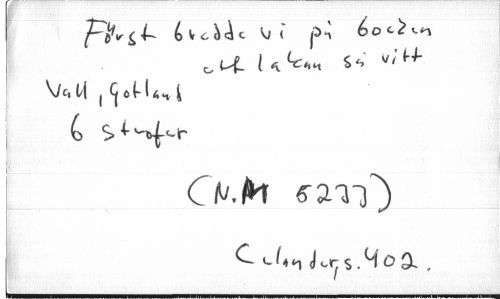 Först bredde vi på borden
ett lakan så vitt
Vall, Gotland
6 strofer
(N.M 5233)
Celander, s. 402.